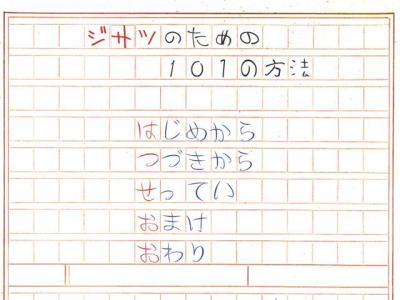 ジサツのための
101の方法
はじめから
つづきから
せってい
おまけ
おわり